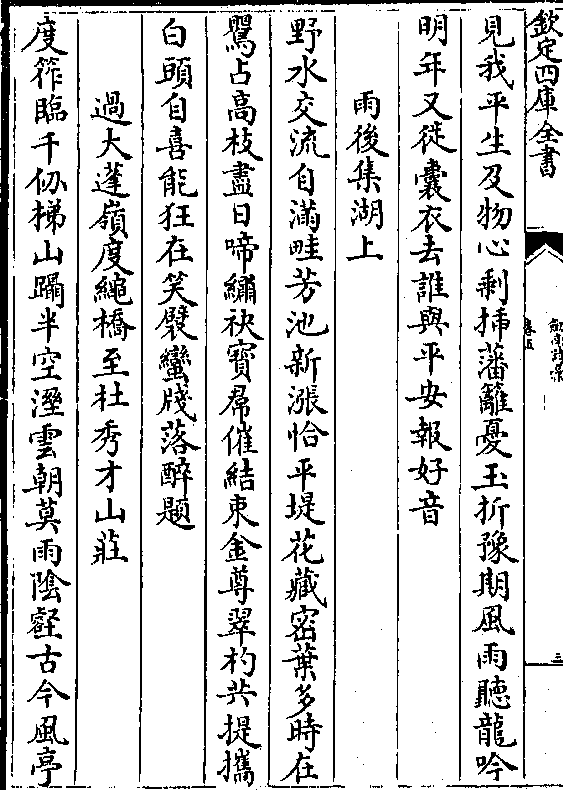 欽定四庫全書
劍南詩稾
卷五
三
見我平生及物心剰揷藩籬憂玉折豫期風雨聽龍吟
明年又從囊衣去誰與平安報好音
雨後集湖上
野水交流自滿畦芳池新漲恰平堤花藏密葉多時在
鸎占高枝盡日啼繡袂寳帬催結束金尊翠杓共提攜
白頭自喜能狂在笑襞蠻牋落醉題
過大蓬嶺度繩橋至杜秀才山莊
度筰臨千仭梯山躡半空溼雲朝莫雨陰壑古今風亭